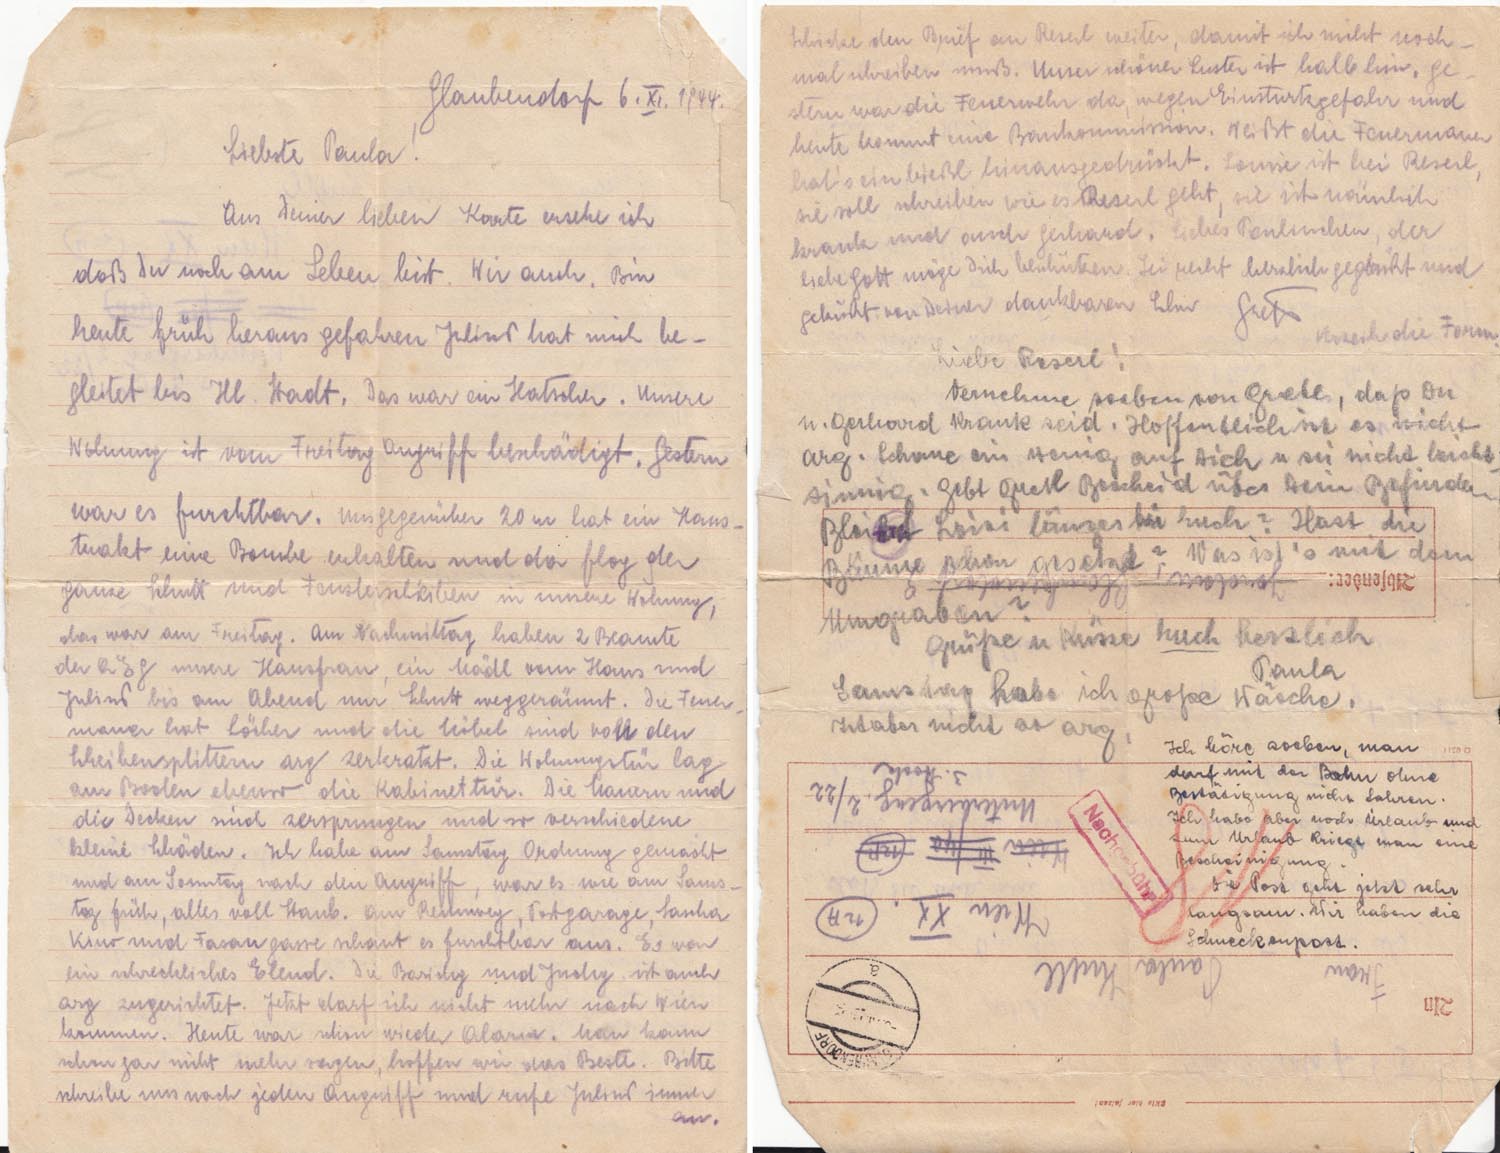 Glaubendorf 6. XI. 1944.
Liebste Paula!
Aus Deiner lieben Karte ersehe ich
daß Du noch am Leben bist. Wir auch. Bin
heute früh heraus gefahren Julius hat mich be-
gleitet bis Hl. Stadt. Das war ein Hatscher. Unsere
Wohnung ist vom Freitag Angriff beschädigt. Gestern
war es furchtbar. Unsgegenüber 20 m hat ein Haus-
trakt eine Bombe erhalten und da flog der
ganze Schutt und Fensterscheiben in unsere Wohnung,
das war am Freitag. Am Nachmittag haben 2 Beamte
der unsere Hausfrau, ein Mädl vom Haus und
Julius bis am Abend nur Schutt weggeräumt. Die Feuer-
mauer hat Löcher und die Möbel sind voll den
Scheibensplittern arg zerkratzt. Die Wohnungstür lag
am Boden ebenso die Kabinettür. Die Mauern und
die Decken sind zersprungen und so verschiedene
kleine Schäden. Ich habe am Samstag Ordnung gemacht
und am Sonntag nach den Angriff, war es wie am Sams-
tag früh, alles voll Staub. Am Rennweg, Postgarage, Sascha
Kino und Fasangasse schaut es furchtbar aus. Es war
ein schreckliches Elend. Die und ist auch
arg zugerichtet. Jetzt darf ich nicht mehr nach Wien
kommen. Heute war schon wieder Alarm. Man kann
schon gar nicht mehr sagen, hoffen wir das Beste. Bitte
schreibe uns nach jeden Angriff und rufe Julius immer
an.
Schicke den Brief an Reserl weiter, damit ich nicht noch-
mal schreiben muß. Unser schöner Luster ist halb hin, ge-
stern war die Feuerwehr da, wegen Einsturtzgefahr und
heute kommt eine Baukommission. Weißt die Feuermauer
hat's ein bießl hinausgedrückt. Louise ist bei Reserl,
sie soll schreiben wie es Reserl geht, sie ist nämlich
krank und auch Gerhard. Liebes Paulinchen, der
liebe Gott möge Dich beschützen. Sei recht herzlich gegrüßt und
geküßt von Deiner dankbaren
Verzeih die Form.
Liebe Reserl!
Vernehme soeben von Gretl, daß Du
u. Gerhard krank seid. Hoffentlich ist es nicht
arg. Schaue ein wenig auf Dich u sei nicht leicht-
sinnig. Gebt Gretl Bescheid über Dein Befinden.
Bleibt Loisi länger bei Euch? Hast die
Bäume schon gesetzt? Was ist's mit dem
Absender:
Umgraben?
Grüße u Küsse Euch herzlich
Paula
Samstag habe ich große Wäsche.
Ist aber nicht so arg.
Ich höre soeben, man
darf mit der Bahn ohne
Bestätigung nicht fahren.
Ich habe aber noch Urlaub und
zum Urlaub kriege man eine
Bescheinigung.
Die Post geht jetzt sehr
langsam. Wir haben die
Schneckenpost.
Nachgebühr
An
Frau Paula
Wien XII.
12A
Wien
12A
2/22
3. Stock
GLAUBENDORF
a
Bitte hier falzen!